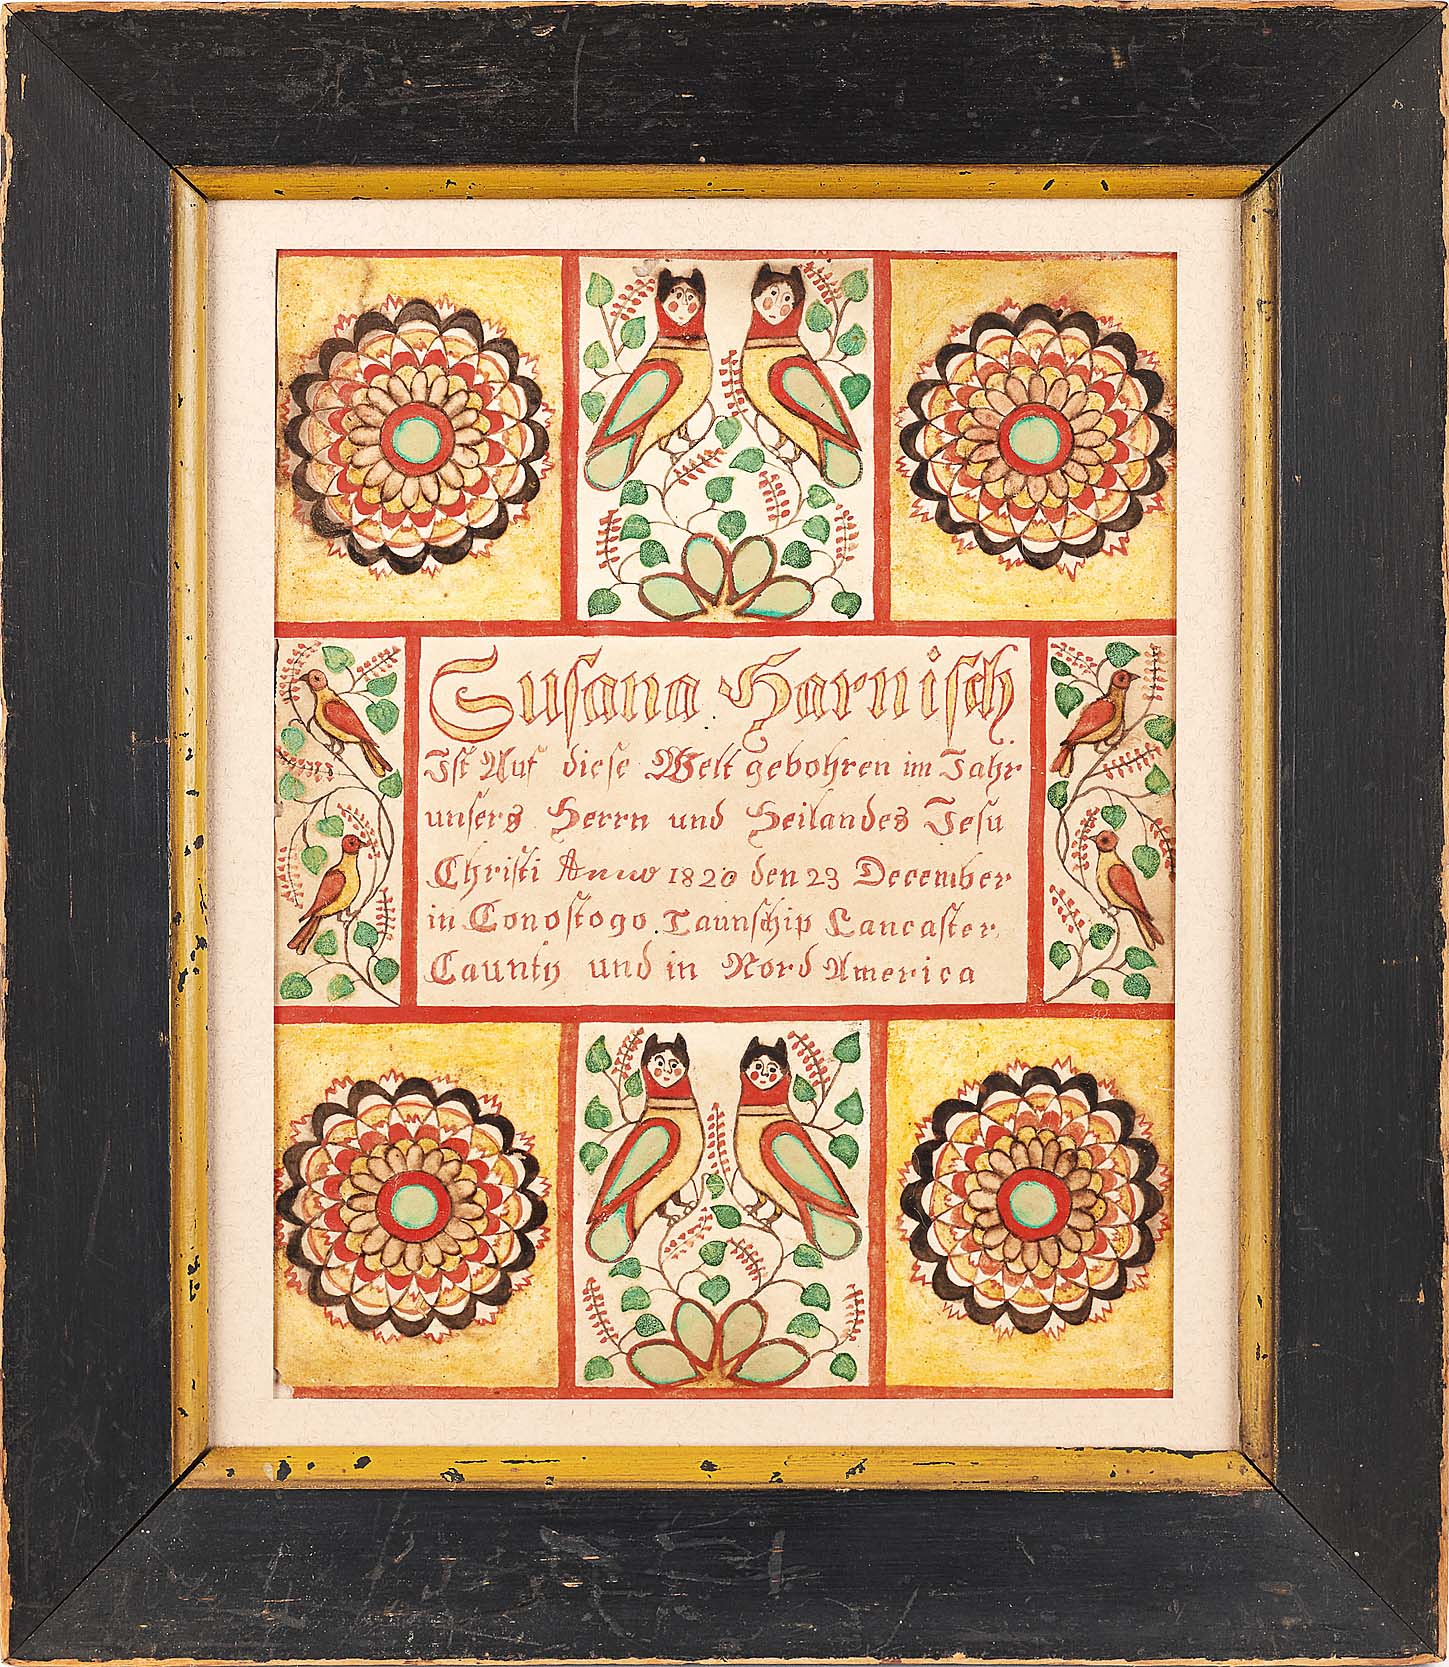 Susana Harnisch
Ist Auf diese Welt gebohren im Jahr
unsers Herrn und Heilandes Jesu
Christi Anno 1820 den 23 December
in Conostogo. Taunschip Lancaster
Caunty und in Nord America